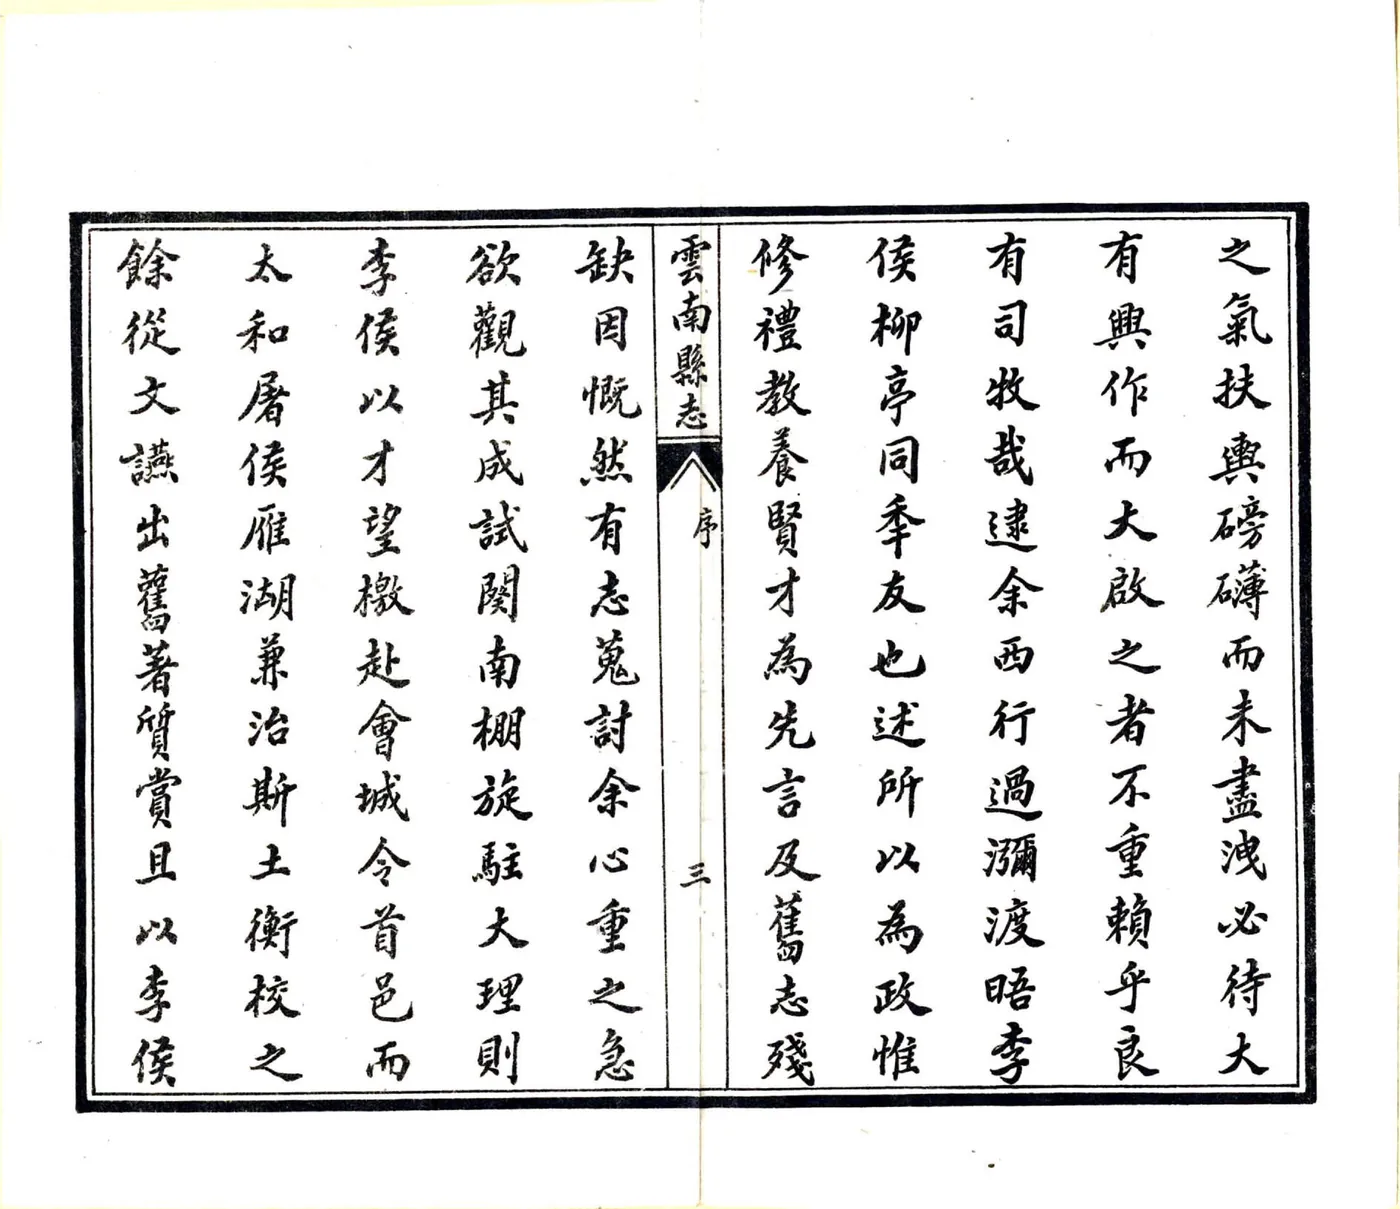 之氣扶輿磅礴而未盡洩必待大
有興作而大啟之者不重賴乎良
有司牧哉逮余西行過瀰渡晤李
侯柳亭同秊友也述所以為政惟
修禮教養賢才為先言及舊志殘
雲南縣志
序
三
缺因慨然有志蒐討余心重之急
欲觀其成試関南棚旋駐大理則
李侯以才望檄赴會城令首邑而
太和屠侯雁湖兼治斯土衡校之
餘從文讌出舊著質賞且以李侯